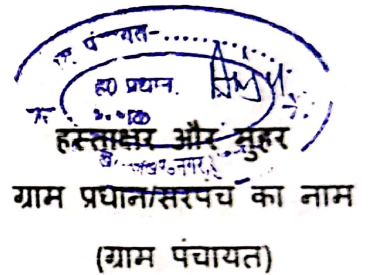 पंचायत-
ह0 प्रधान.
हस्ताक्षर और मुहर
ग्राम प्रधान/सरपंच का नाम
(ग्राम पंचायत)